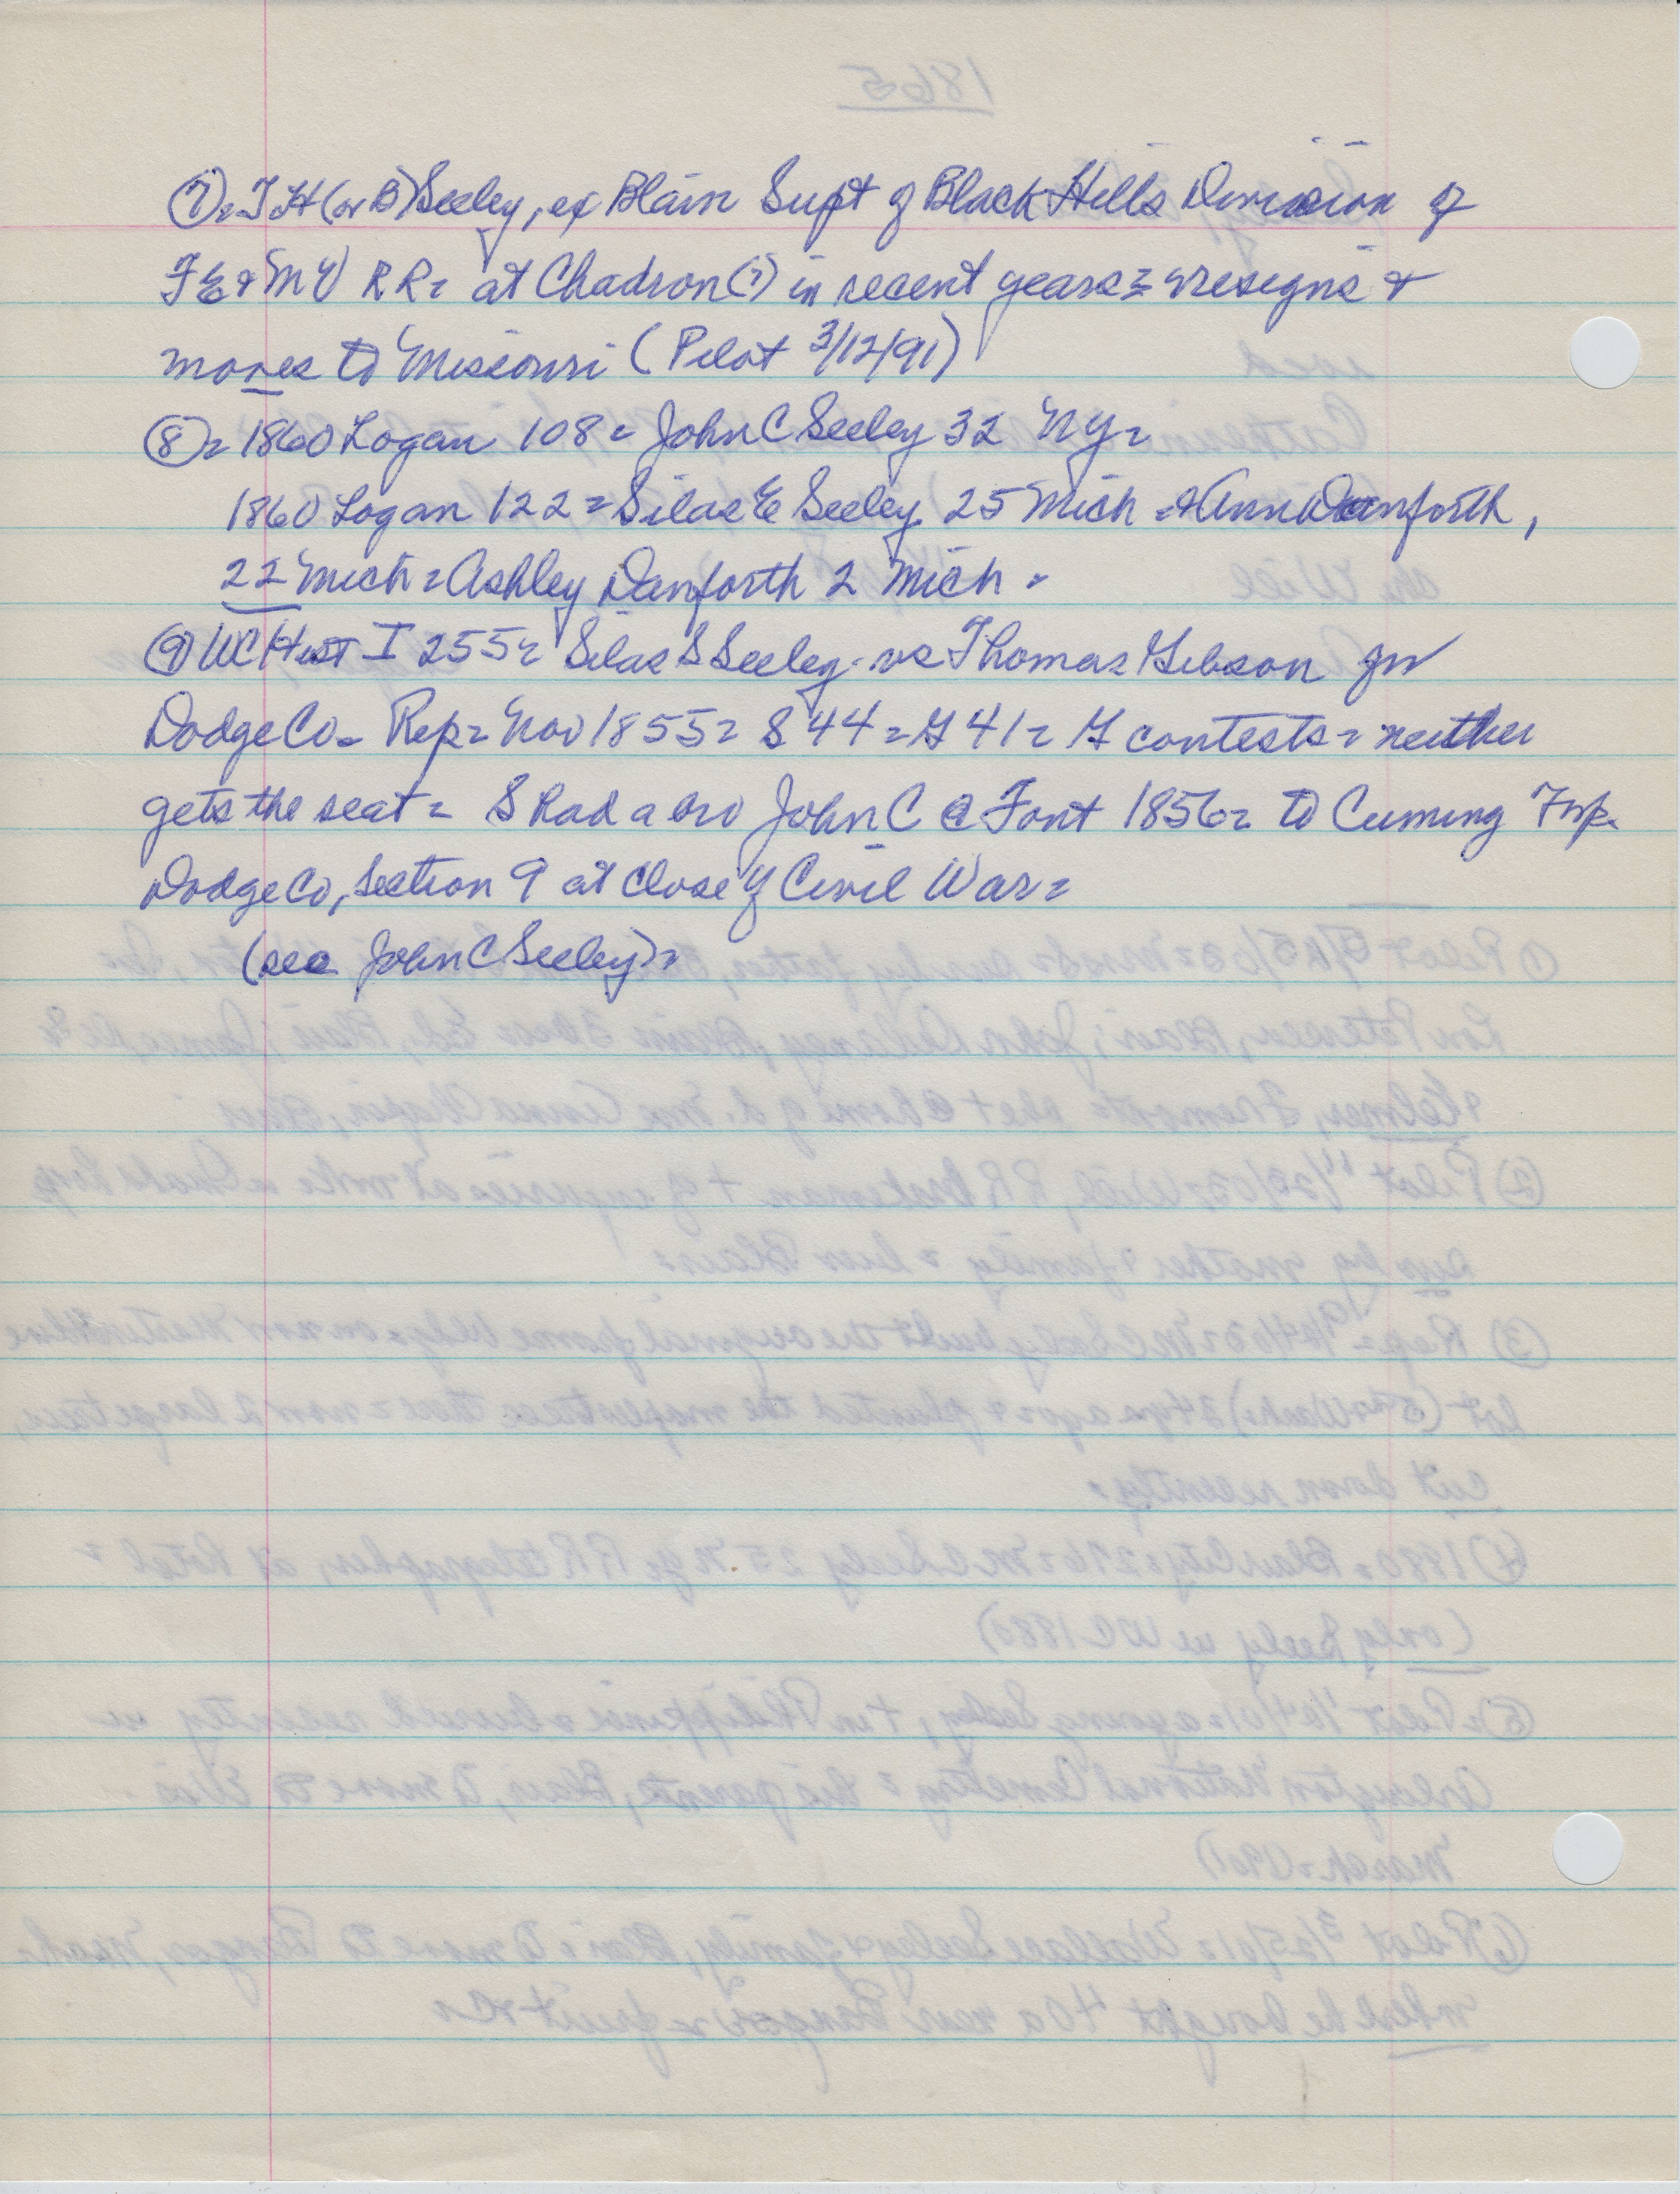 ⑦= T H (or B) Seeley, ex Blair Supt of Black Hills Division of
F E & M V RR= at Chadron (?) in recent years= resigns &
moves to Missouri (Pilot 3/12/91)
⑧= 1860 Logan 108= John C Seeley 32 NY=
1860 Logan 122= Silas E Seeley 25 Mich =& Ann Danforth,
22 Mich= Ashley Danforth 2 Mich=
⑨ WC Hist I 255= Silas S Seeley vs Thomas Gibson for
Dodge Co= Rep= Nov 1855= S 44= G 41= G contests= neither
gets the seat= S had a bro John C @ Font 1856= to Cuming Twp.
Dodge Co, Section 9 at close of Civil War=
(see John C Seeley)=